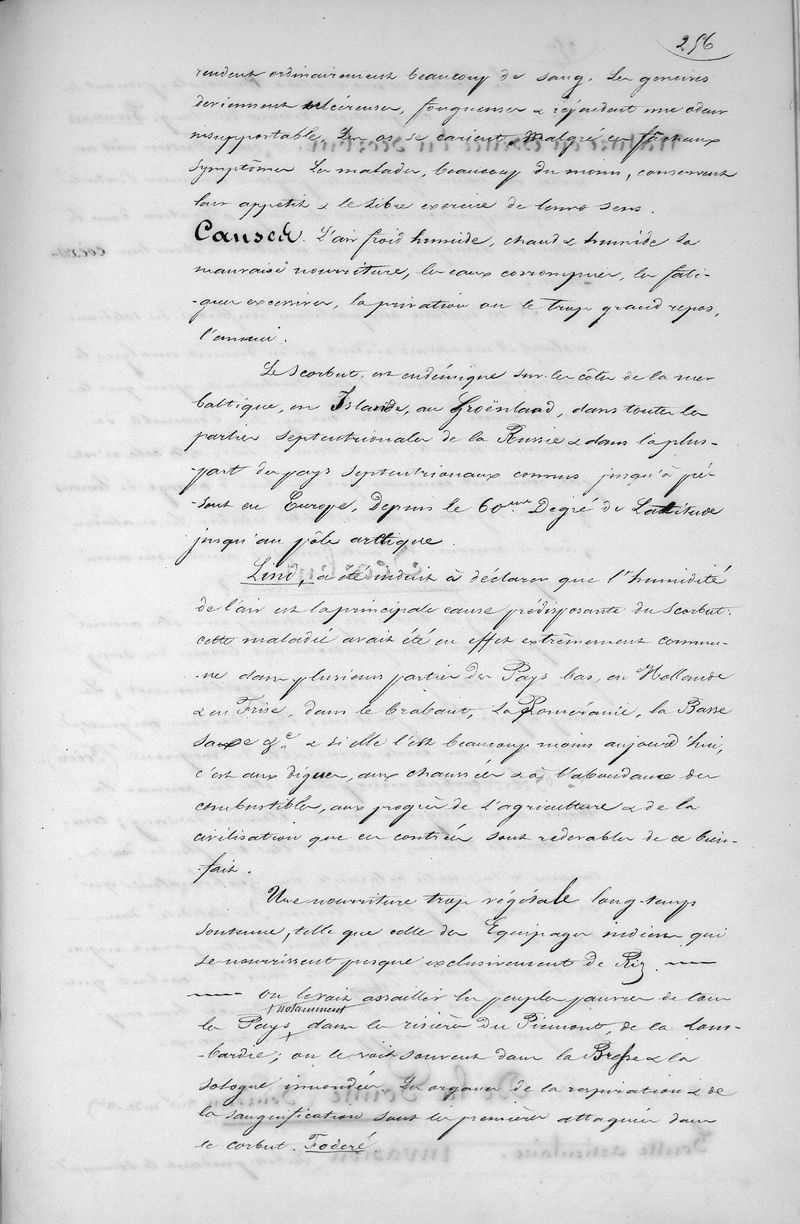 256
rendent ordinairement beaucoup de sang. Les gencives
deviennent ulcéreuses, fongueuses & répandent une odeur
insupportable. Les os se carient. Malgré ces fâcheux
symptômes Les malades, beaucoup du moins, conservent
leur appétit & le libre exercice de leurs sens.
Causes. L'air froid humide, chaud & humide la
mauvaise nourriture, les eaux corrompues, les fati-
-gues excessives, la privation ou le trop grand repos,
l'ennui.
Le scorbut, est endémique sur les côtes de la mer
baltique, en Islande, au Groënland, dans toutes les
parties septentrionales de la Russie & dans la plus-
-part des pays septentrionaux connus jusqu'à pré-
-sent en Europe, Depuis le 60me Degré de Latitude
jusqu'au pôle arctique.
Lind, a été induit à déclarer que l'humidité
de l'air est la principale cause prédisposante du Scorbut:
cette maladie avait été en effet extrêmement commu-
-ne dans plusieurs parties des Pays bas, en Hollande
& en Frise, dans le brabant, la Poméranie, la Basse
saxe &c & si elle l'est beaucoup moins aujourd'hui,
c'est aux digues, aux chaussées & à l'abondance des
combustibles, aux progrès de L'agriculture & de la
civilisation que ces contrées sont redevables de ce bien-
-fait.
Une nourriture trop végétale long-temps
soutenue, telle que celle des Equipages indiens qui
se nourrissent presque exclusivement de Riz. —
— on le voit assaillir les peuples pauvres de tous
les Pays, notamment dans les rizières du Piemont, de la Lom-
-bardie; on le voit souvent dans la Bresse & la
sologne inondées. Les organes de la respiration & de
la sanguification sont les premiers attaqués dans
le corbut. Foderé